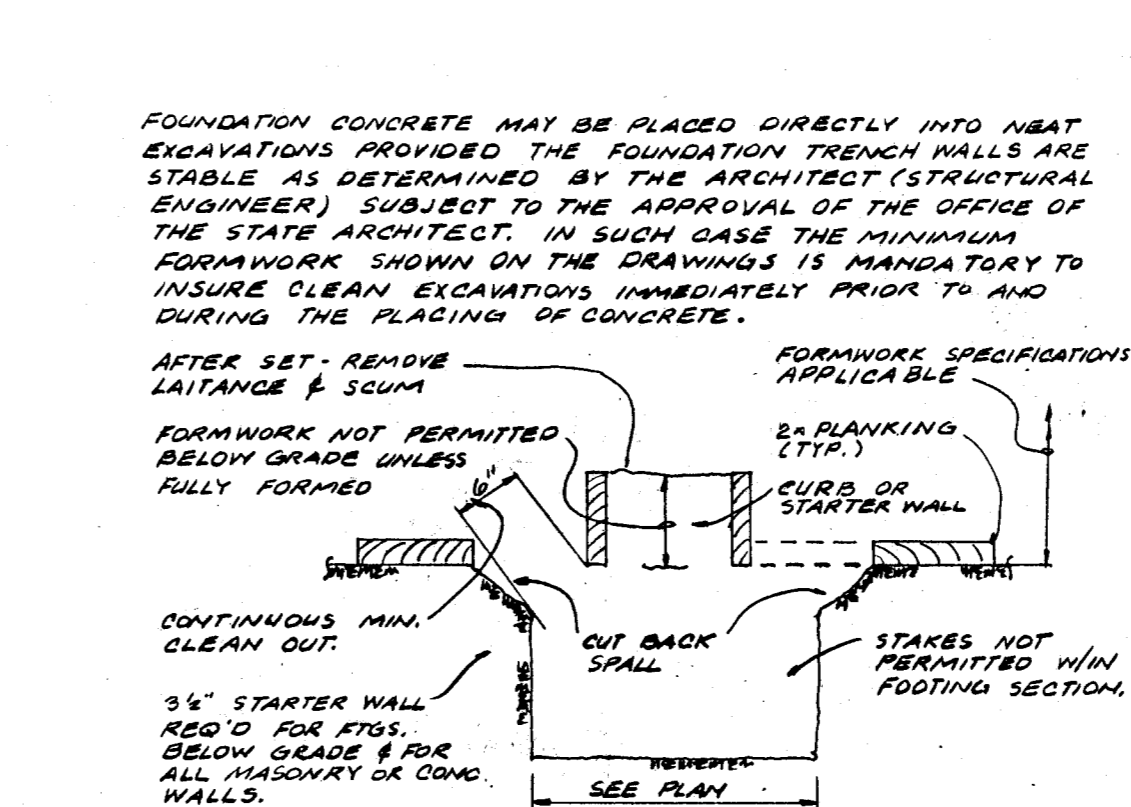 FOUNDATION CONCRETE MAY BE PLACED DIRECTLY INTO NEAT
EXCAVATIONS PROVIDED THE FOUNDATION TRENCH WALLS ARE
STABLE AS DETERMINED BY THE ARCHITECT (STRUCTURAL
ENGINEER) SUBJECT TO THE APPROVAL OF THE OFFICE OF
THE STATE ARCHITECT. IN SUCH CASE THE MINIMUM
FORMWORK SHOWN ON THE DRAWINGS IS MANDATORY TO
INSURE CLEAN EXCAVATIONS IMMEDIATELY PRIOR TO AND
DURING THE PLACING OF CONCRETE.
AFTER SET - REMOVE
LAITANCE & SCUM
FORMWORK SPECIFICATIONS
APPLICABLE
FORMWORK NOT PERMITTED
BELOW GRADE UNLESS
FULLY FORMED
6"
2x PLANKING
(TYP.)
CURB OR
STARTER WALL
CONTINUOUS MIN.
CLEAN OUT.
CUT BACK
SPALL
STAKES NOT
PERMITTED W/IN
FOOTING SECTION.
3½" STARTER WALL
REQ'D FOR FTGS.
BELOW GRADE & FOR
ALL MASONRY OR CONC.
WALLS.
SEE PLAN